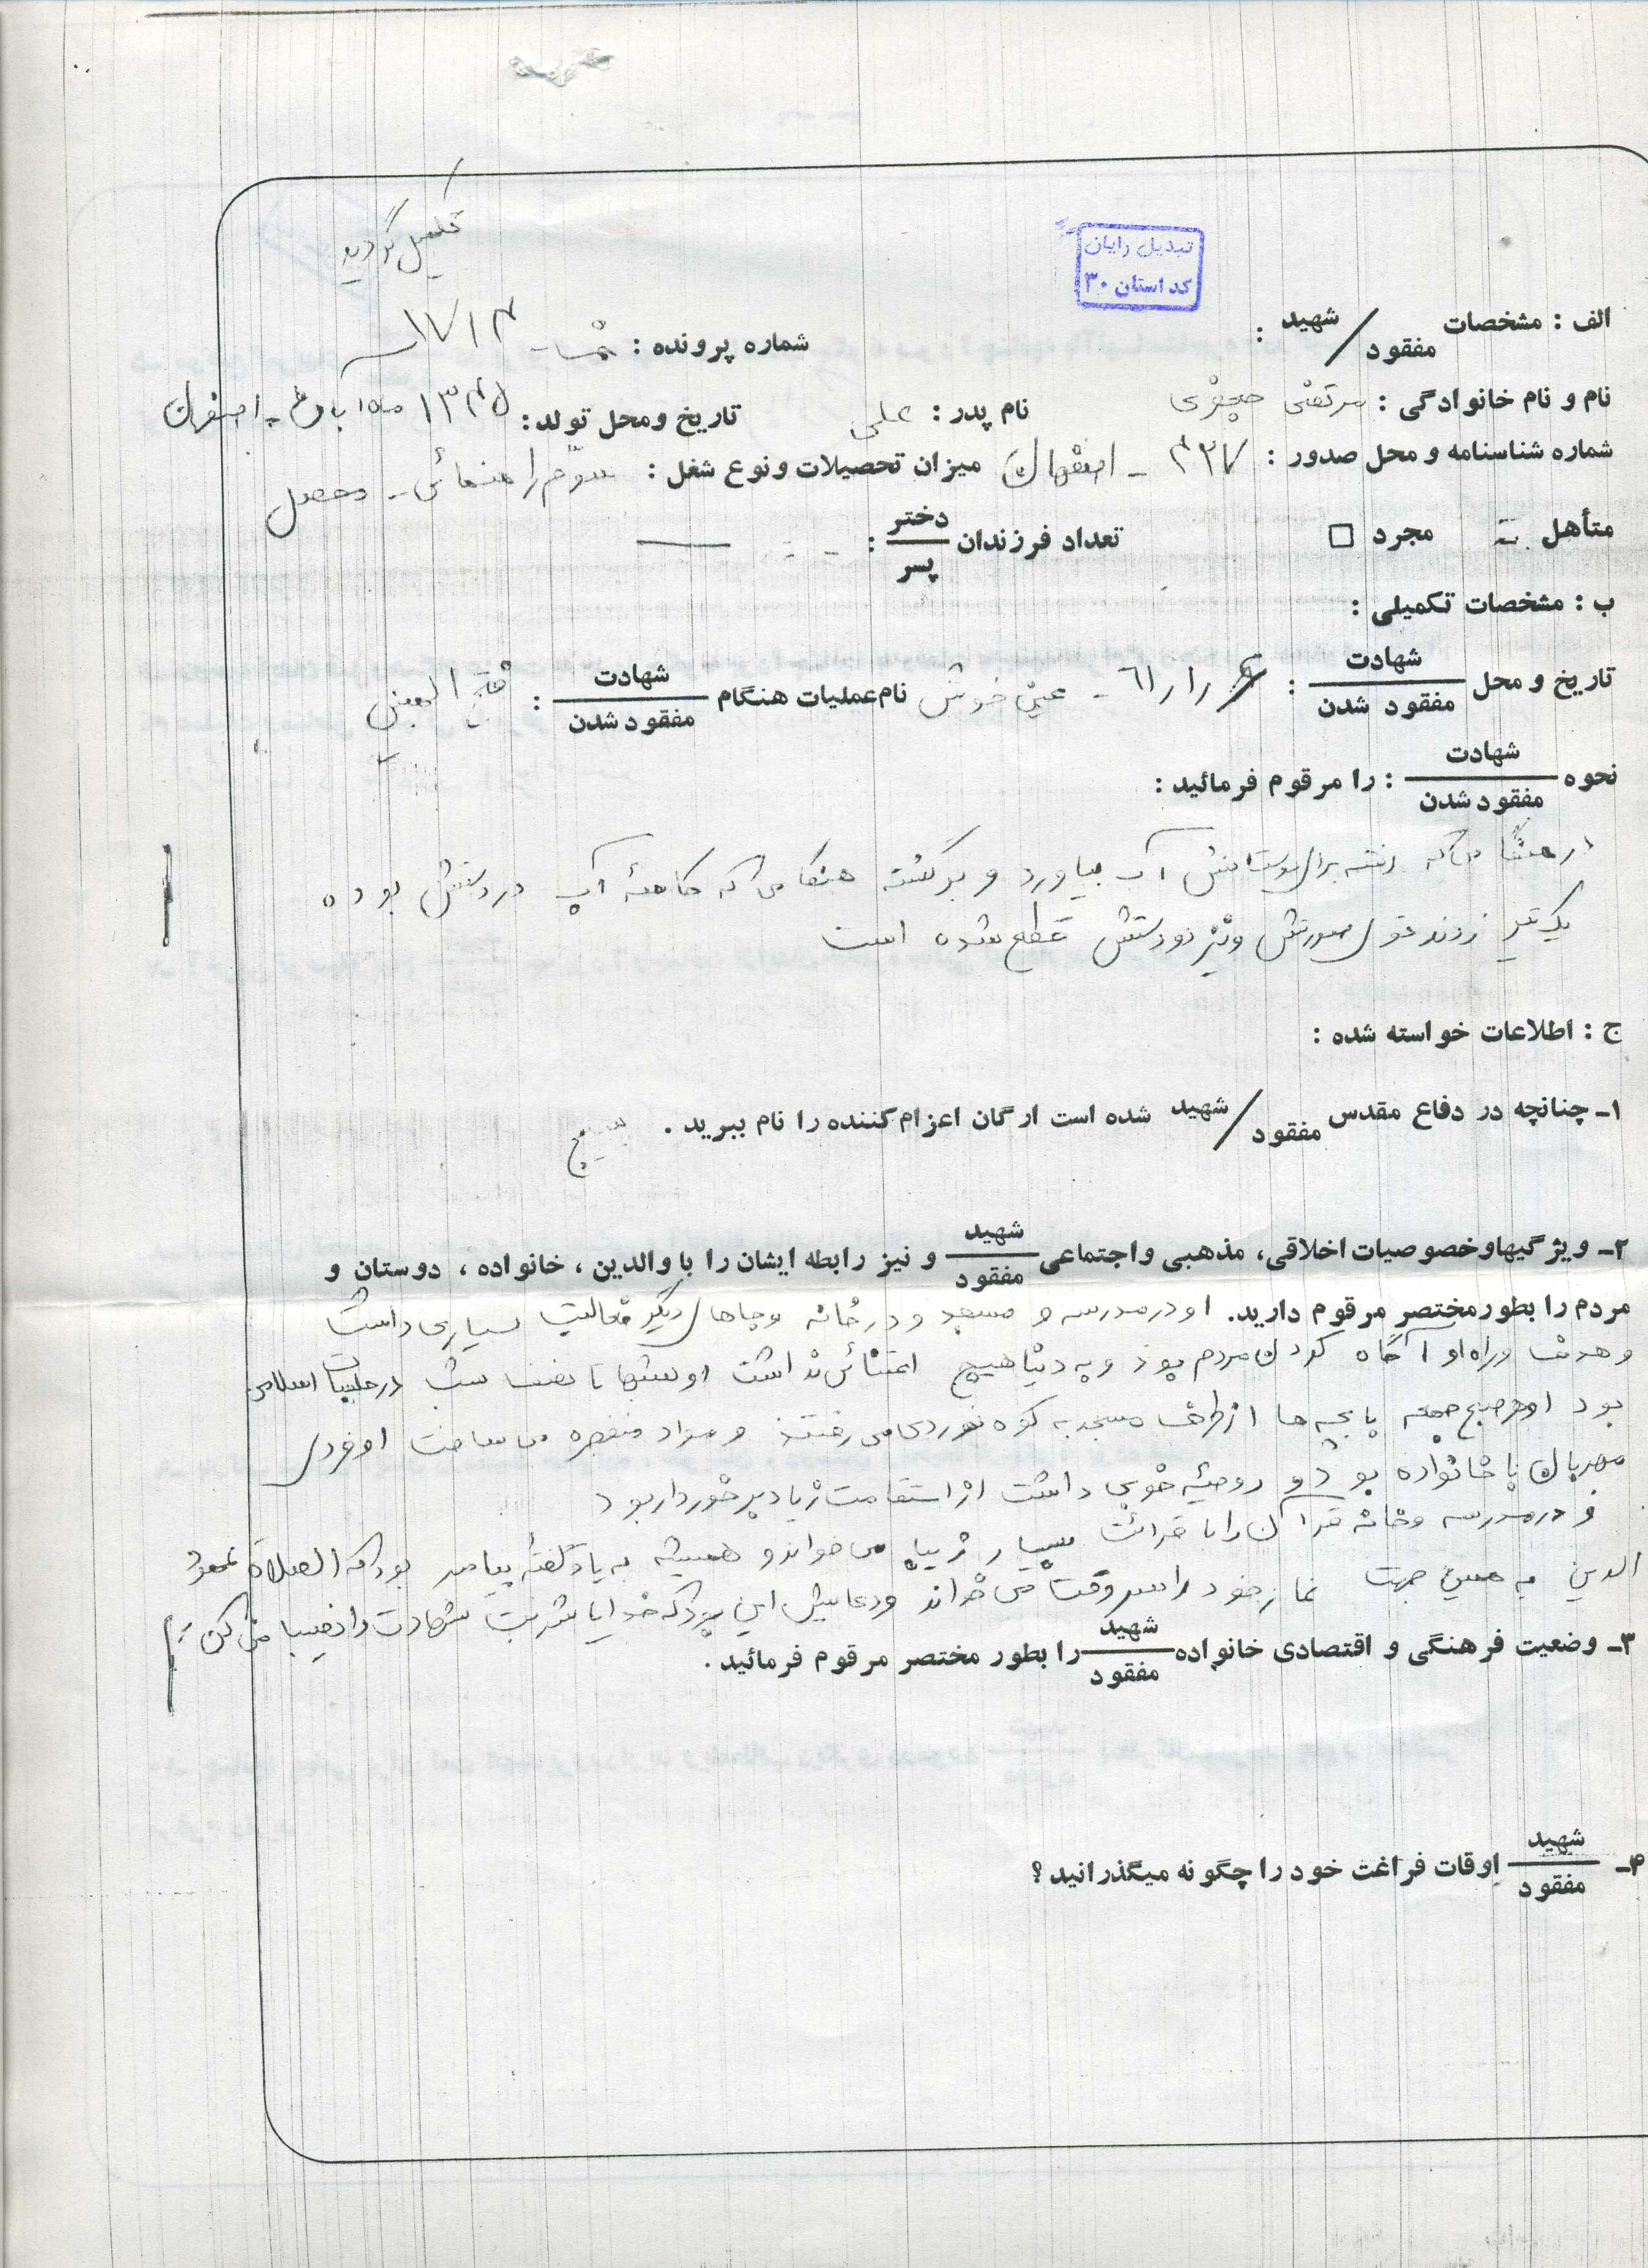 تکمیل گردید
تبدیل رایان
کد استان ۳۰
الف : مشخصات شهید / مفقود :
شماره پرونده : ۱۷۱۴
نام و نام خانوادگی : مرتضی جعفری نام پدر : علی تاریخ ومحل تولد : ۱۳۴۵ ماه آبان - اصفهان
شماره شناسنامه و محل صدور : ۴۳۷ - اصفهان میزان تحصیلات ونوع شغل : سوّم راهنمائی - محصل
متأهل مجرد □ تعداد فرزندان دختر / پسر : —
ب : مشخصات تکمیلی :
تاریخ و محل شهادت / مفقود شدن : ۱ر۶۱ - عین خوش نام عملیات هنگام شهادت / مفقود شدن : فتح المبین
نحوه شهادت / مفقود شدن : را مرقوم فرمائید :
در هنگامی که رفته برای دوستانش آب بیاورد و برگشته هنگامی که کاسهٔ آب در دستش بوده
یک تیر زدند توی صورتش و نیز دو دستش قطع شده است
ج : اطلاعات خواسته شده :
۱- چنانچه در دفاع مقدس شهید / مفقود شده است ارگان اعزام کننده را نام ببرید . بسیج
۲- ویژگیها و خصوصیات اخلاقی، مذهبی واجتماعی شهید / مفقود و نیز رابطه ایشان را با والدین ، خانواده ، دوستان و
مردم را بطور مختصر مرقوم دارید. او در مدرسه و مسجد و در خانه و جاهای دیگر فعالیت بسیاری داشت
و هدف و راه او آگاه کردن مردم بود و به دنیا هیچ اعتنائی نداشت او شبها تا نصف شب در جلسات اسلامی
بود او هر صبح جمعه با بچه ها از طرف مسجد به کوه نوردی می رفتند و مواد منفجره می ساخت او فردی
مهربان با خانواده بود و روحیهٔ خوبی داشت از استقامت زیاد برخوردار بود
و در مدرسه و خانه قرآن را با قرائت بسیار زیبا می خواند و همیشه به یاد گفتهٔ پیامبر بود که الصلاة عمود
الدین به همین جهت نماز خود را سر وقت می خواند و دعایش این بود که خدایا شربت شهادت را نصیب من کن
۳- وضعیت فرهنگی و اقتصادی خانواده شهید / مفقود را بطور مختصر مرقوم فرمائید .
۴- شهید / مفقود اوقات فراغت خود را چگونه میگذرانید ؟